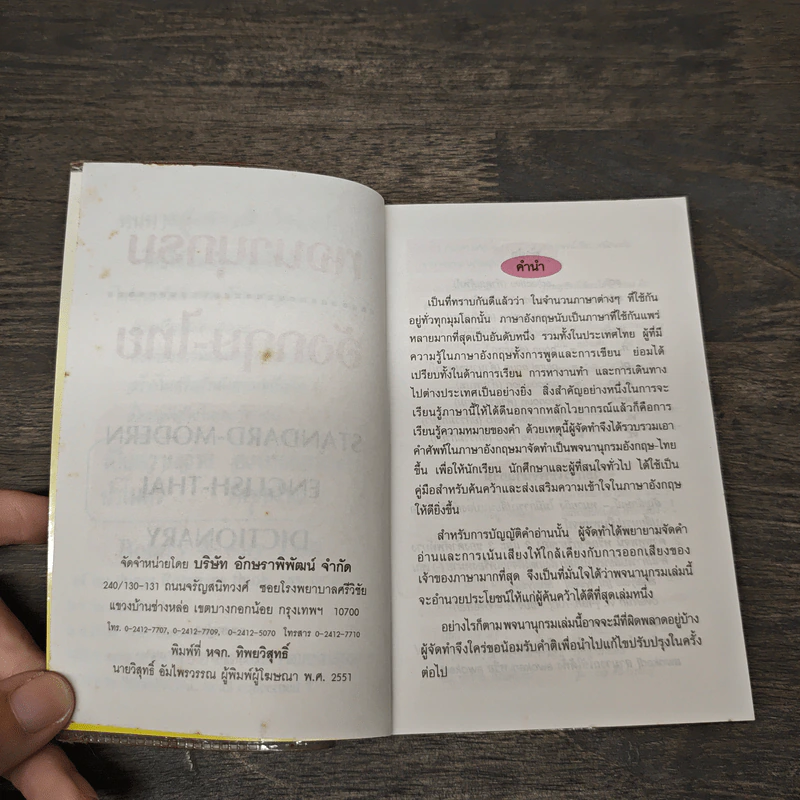 จัดจำหน่ายโดย บริษัท อักษราพิพัฒน์ จำกัด
240/130-131 ถนนจรัญสนิทวงศ์ ซอยโรงพยาบาลศรีวิชัย
แขวงบ้านช่างหล่อ เขตบางกอกน้อย กรุงเทพฯ 10700
โทร. 0-2412-7707, 0-2412-7709, 0-2412-5070 โทรสาร 0-2412-7710
พิมพ์ที่ หจก. ทิพยวิสุทธิ์
นายวิสุทธิ์ อัมไพรวรรณ ผู้พิมพ์ผู้โฆษณา พ.ศ. 2551
คำนำ
เป็นที่ทราบกันดีแล้วว่า ในจำนวนภาษาต่างๆ ที่ใช้กัน
อยู่ทั่วทุกมุมโลกนั้น ภาษาอังกฤษนับเป็นภาษาที่ใช้กันแพร่
หลายมากที่สุดเป็นอันดับหนึ่ง รวมทั้งในประเทศไทย ผู้ที่มี
ความรู้ในภาษาอังกฤษทั้งการพูดและการเขียน ย่อมได้
เปรียบทั้งในด้านการเรียน การหางานทำ และการเดินทาง
ไปต่างประเทศเป็นอย่างยิ่ง สิ่งสำคัญอย่างหนึ่งในการจะ
เรียนรู้ภาษานี้ให้ได้ดีนอกจากหลักไวยากรณ์แล้วก็คือการ
เรียนรู้ความหมายของคำ ด้วยเหตุนี้ผู้จัดทำจึงได้รวบรวมเอา
คำศัพท์ในภาษาอังกฤษมาจัดทำเป็นพจนานุกรมอังกฤษ-ไทย
ขึ้น เพื่อให้นักเรียน นักศึกษาและผู้ที่สนใจทั่วไป ได้ใช้เป็น
คู่มือสำหรับค้นคว้าและส่งเสริมความเข้าใจในภาษาอังกฤษ
ให้ดียิ่งขึ้น
สำหรับการบัญญัติคำอ่านนั้น ผู้จัดทำได้พยายามจัดคำ
อ่านและการเน้นเสียงให้ใกล้เคียงกับการออกเสียงของ
เจ้าของภาษามากที่สุด จึงเป็นที่มั่นใจได้ว่าพจนานุกรมเล่มนี้
จะอำนวยประโยชน์ให้แก่ผู้ค้นคว้าได้ดีที่สุดเล่มหนึ่ง
อย่างไรก็ตามพจนานุกรมเล่มนี้อาจจะมีที่ผิดพลาดอยู่บ้าง
ผู้จัดทำจึงใคร่ขอน้อมรับคำติเพื่อนำไปแก้ไขปรับปรุงในครั้ง
ต่อไป